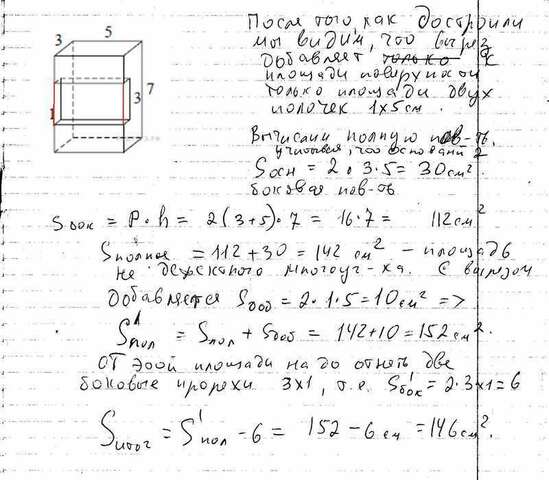 3
5
7
3
1
После того, как достроили
мы видим, что вырез
добавляет только к
площади поверхности
только площади двух
полочек 1x5 см.
Вычислим полную пов-ть.
учитывая, что оснований 2
Sосн = 2 · 3·5 = 30 см².
боковая пов-ть
Sбок = P·h = 2(3+5)·7 = 16·7 = 112 см²
Sполное = 112+30 = 142 см² – площадь
многоуг-ка. С вырезом
добавляется Sдоб = 2·1·5=10 см² =>
S¹пол = Sпол + Sдоб = 142+10=152 см².
От этой площади надо отнять две
боковые прорехи 3x1, т.е. S¹бок = 2·3x1=6
Sитог = S¹пол - 6 = 152 - 6 см = 146 см².